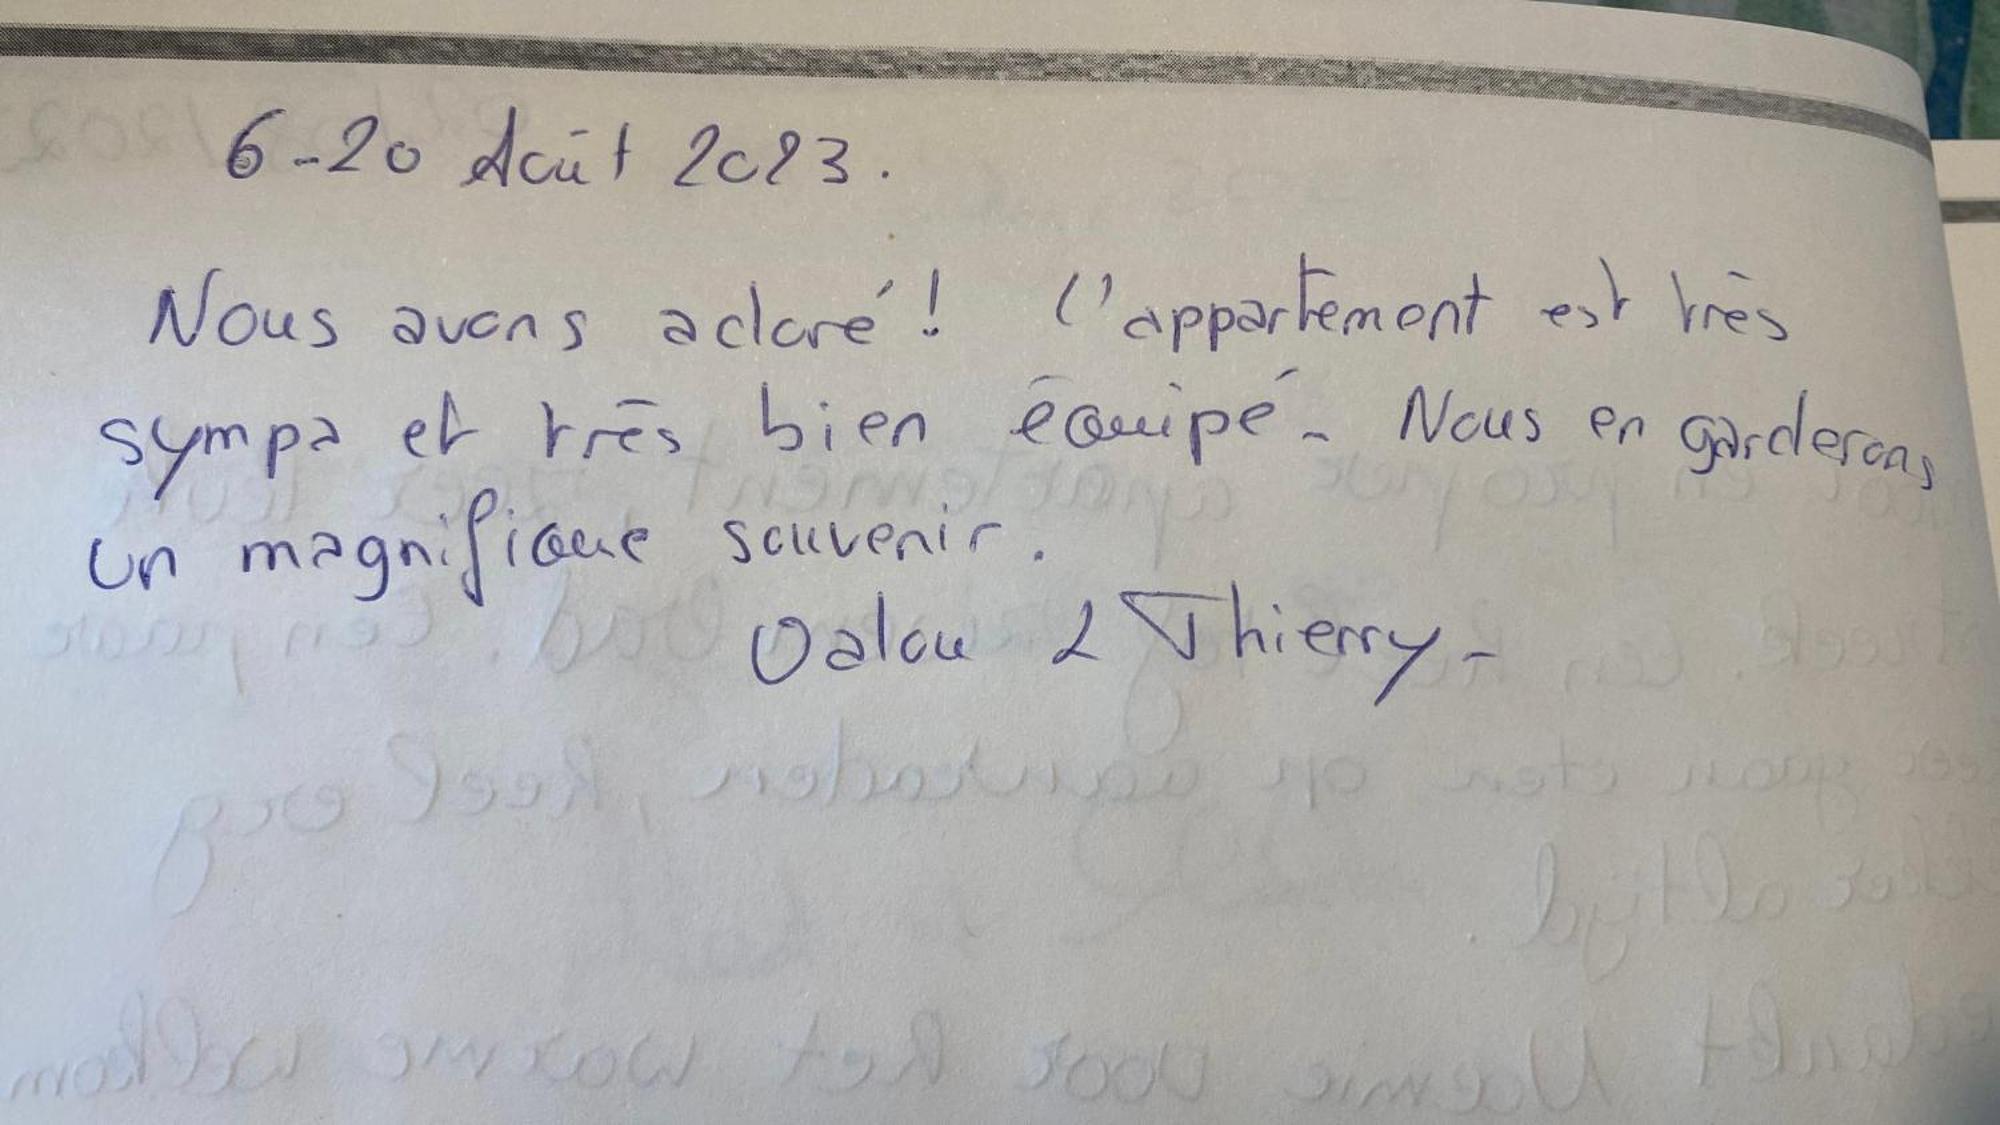 6-20 Août 2023.
Nous avons adoré! l'appartement est très
sympa et très bien équipé- Nous en garderons
un magnifique souvenir.
Valou & Thierry-